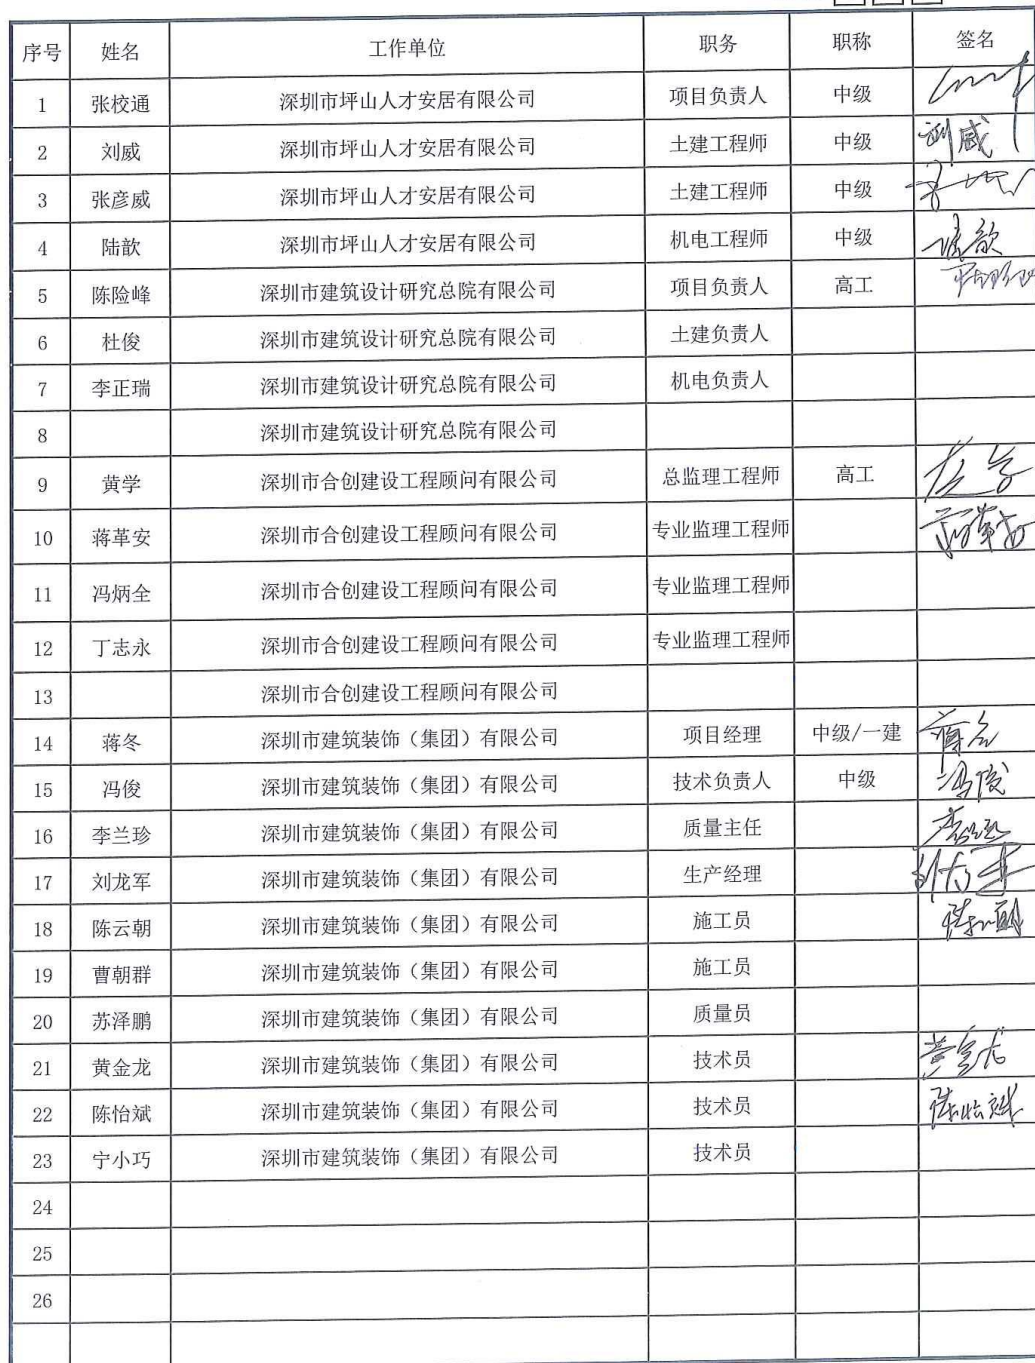 序号 姓名 工作单位 职务 职称 签名
1 张校通 深圳市坪山人才安居有限公司 项目负责人 中级
2 刘威 深圳市坪山人才安居有限公司 土建工程师 中级 刘威
3 张彦威 深圳市坪山人才安居有限公司 土建工程师 中级
4 陆歆 深圳市坪山人才安居有限公司 机电工程师 中级 陆歆
5 陈险峰 深圳市建筑设计研究总院有限公司 项目负责人 高工
6 杜俊 深圳市建筑设计研究总院有限公司 土建负责人
7 李正瑞 深圳市建筑设计研究总院有限公司 机电负责人
8 深圳市建筑设计研究总院有限公司
9 黄学 深圳市合创建设工程顾问有限公司 总监理工程师 高工
10 蒋革安 深圳市合创建设工程顾问有限公司 专业监理工程师 蒋革安
11 冯炳全 深圳市合创建设工程顾问有限公司 专业监理工程师
12 丁志永 深圳市合创建设工程顾问有限公司 专业监理工程师
13 深圳市合创建设工程顾问有限公司
14 蒋冬 深圳市建筑装饰（集团）有限公司 项目经理 中级/一建 蒋冬
15 冯俊 深圳市建筑装饰（集团）有限公司 技术负责人 中级 冯俊
16 李兰珍 深圳市建筑装饰（集团）有限公司 质量主任
17 刘龙军 深圳市建筑装饰（集团）有限公司 生产经理
18 陈云朝 深圳市建筑装饰（集团）有限公司 施工员 陈云朝
19 曹朝群 深圳市建筑装饰（集团）有限公司 施工员
20 苏泽鹏 深圳市建筑装饰（集团）有限公司 质量员
21 黄金龙 深圳市建筑装饰（集团）有限公司 技术员 黄金龙
22 陈怡斌 深圳市建筑装饰（集团）有限公司 技术员 陈怡斌
23 宁小巧 深圳市建筑装饰（集团）有限公司 技术员
24
25
26